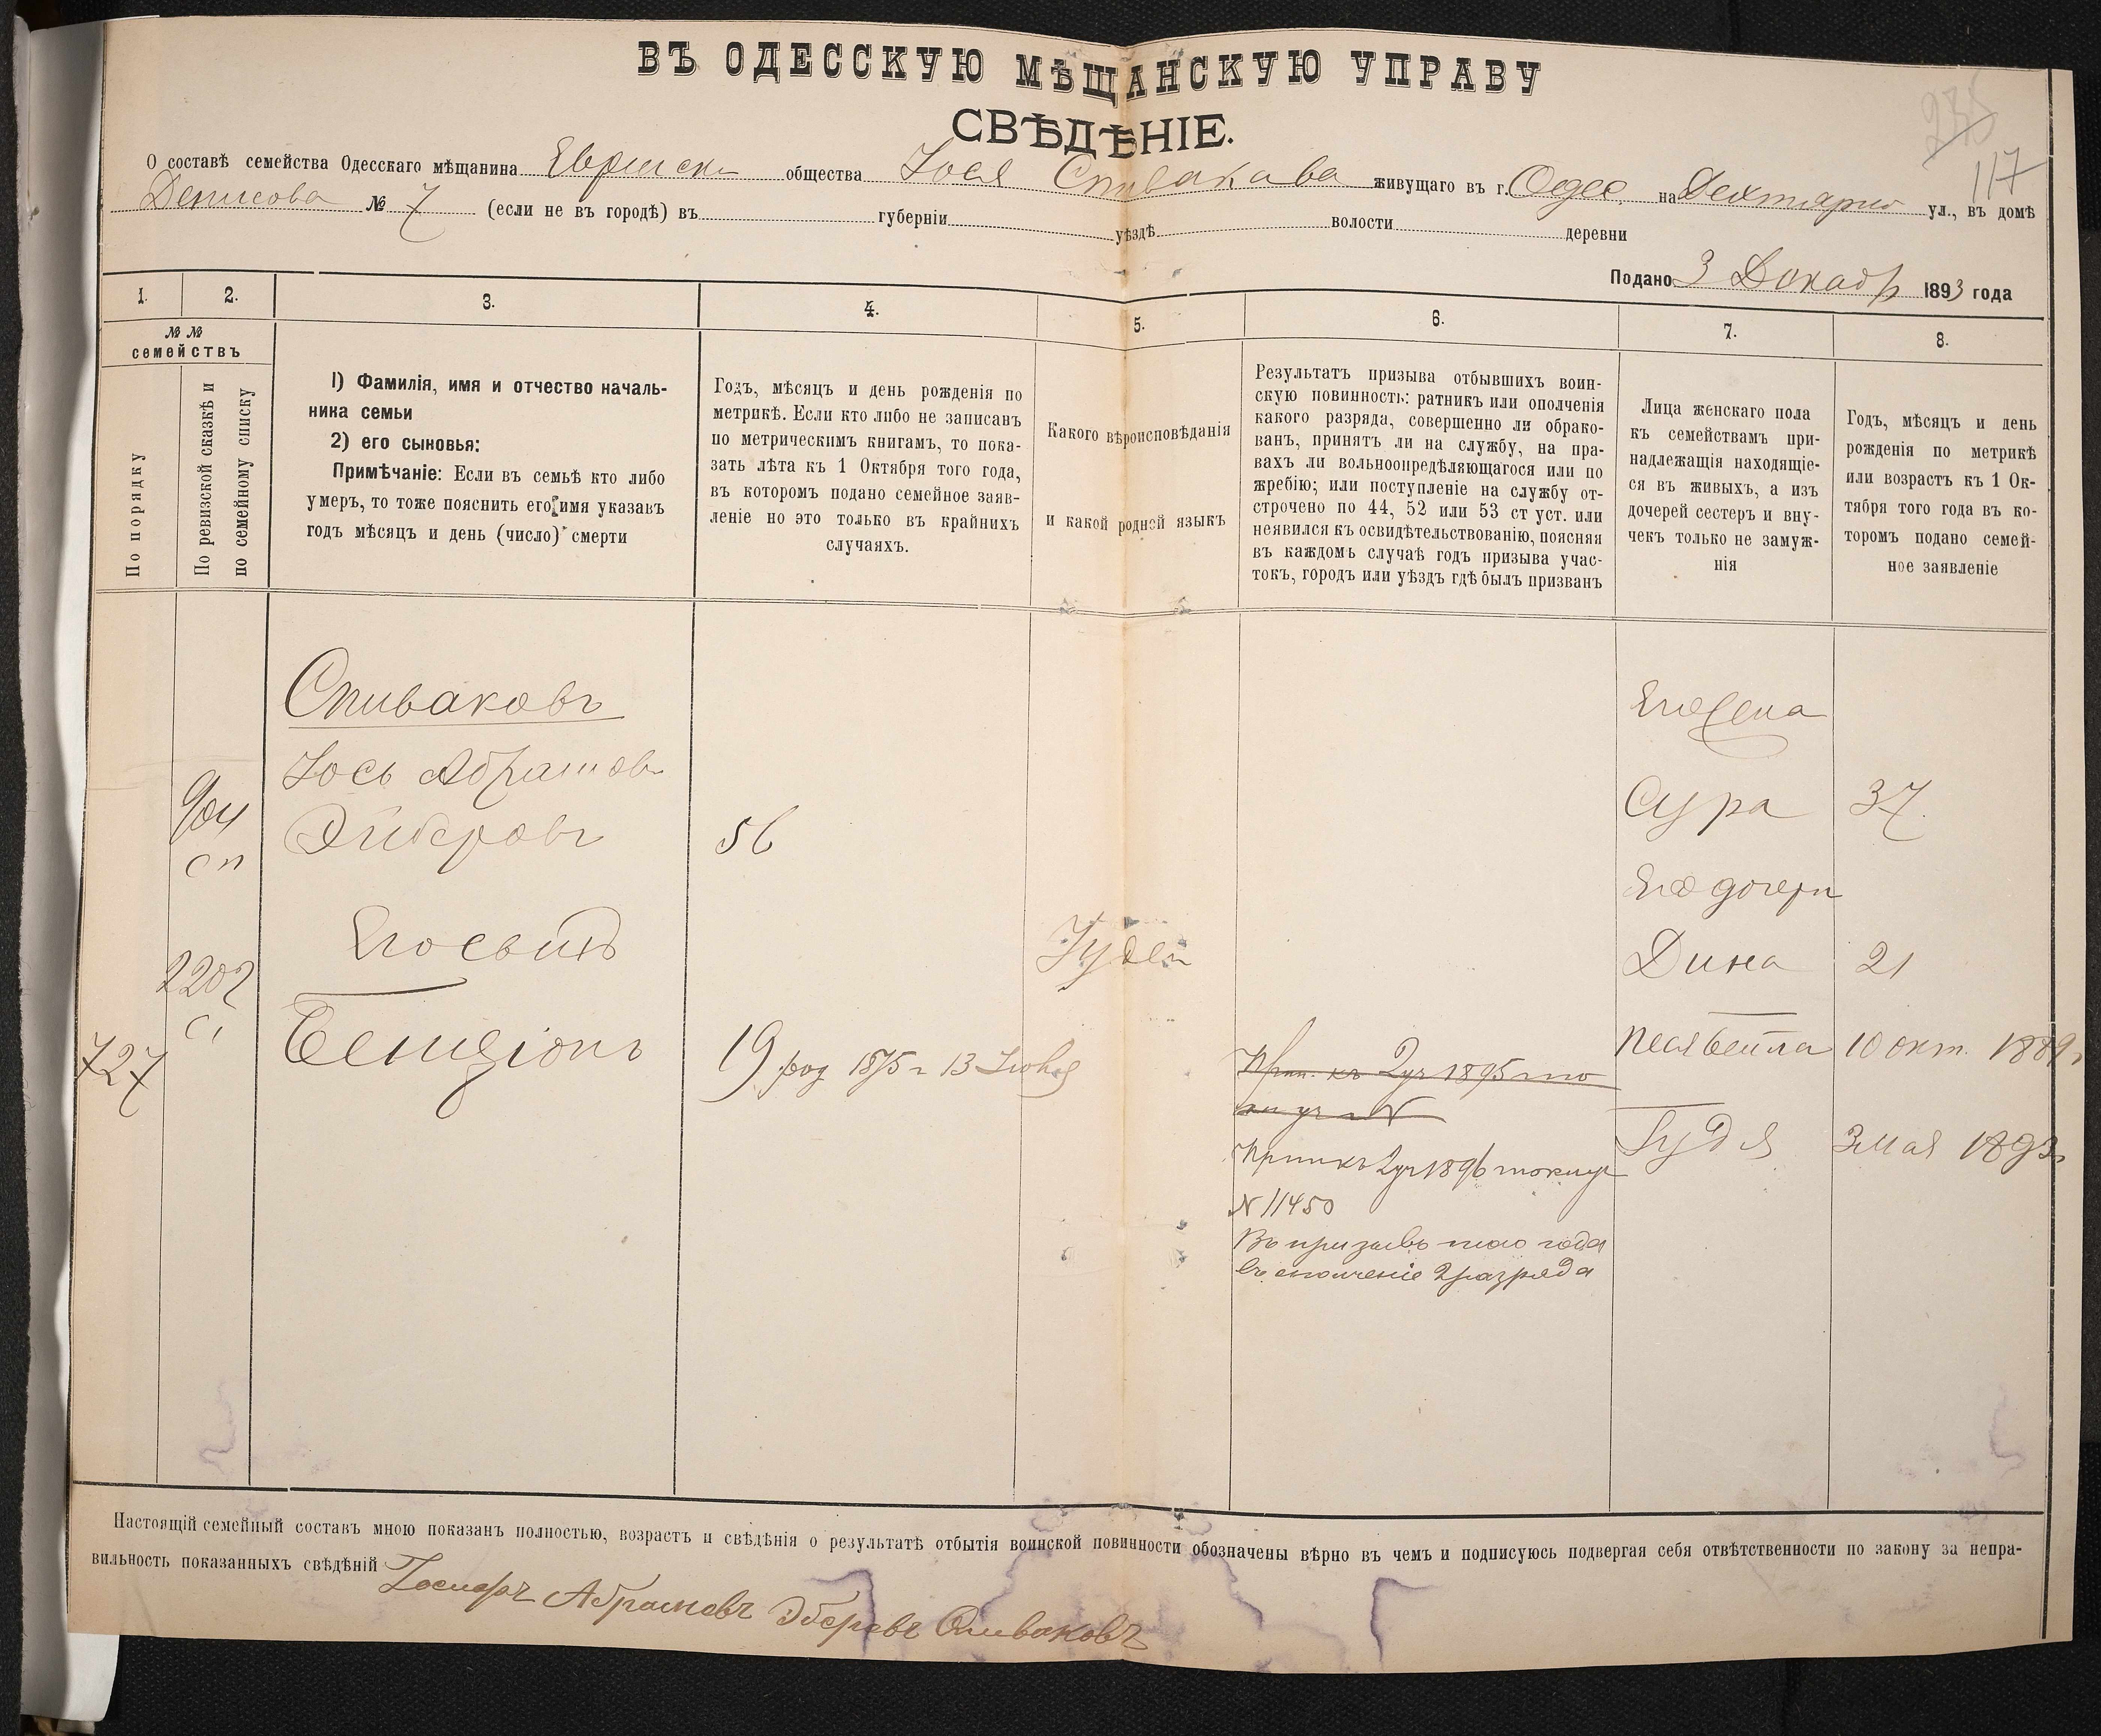 ВЪ ОДЕССКУЮ МѢЩАНСКУЮ УПРАВУ
СВѢДѢНІЕ.
235
117
О составѣ семейства Одесскаго мѣщанина Еврейск общества Іося Спивакова живущаго въ г. Одес. на Дехтярно ул., въ домѣ
Денисова № 7 (если не въ городѣ) въ губерніи уѣздѣ волости деревни
Подано 3 Декабр 1893 года
1. 2. 3. 4. 5. 6. 7. 8.
№ №
семействъ
По порядку
По ревизской сказкѣ и
по семейному списку
1) Фамилія, имя и отчество началь-
ника семьи
2) его сыновья:
Примѣчаніе: Если въ семьѣ кто либо
умеръ, то тоже пояснить его имя указавъ
годъ мѣсяцъ и день (число) смерти
Годъ, мѣсяцъ и день рожденія по
метрикѣ. Если кто либо не записанъ
по метрическимъ книгамъ, то пока-
зать лѣта къ 1 Октября того года,
въ которомъ подано семейное заяв-
леніе но это только въ крайнихъ
случаяхъ.
Какого вѣроисповѣданія
и какой родной языкъ
Результатъ призыва отбывшихъ воин-
скую повинность: ратникъ или ополченія
какого разряда, совершенно ли обрако-
ванъ, принятъ ли на службу, на пра-
вахъ ли вольноопредѣляющагося или по
жребію; или поступленіе на службу от-
строчено по 44, 52 или 53 ст уст. или
неявился къ освидѣтельствованію, поясняя
въ каждомъ случаѣ годъ призыва учас-
токъ, городъ или уѣздъ гдѣ былъ призванъ
Лица женскаго пола
къ семействамъ при-
надлежащія находящіе-
ся въ живыхъ, а изъ
дочерей сестеръ и вну-
чекъ только не замуж-
нія
Годъ, мѣсяцъ и день
рожденія по метрикѣ
или возрастъ къ 1 Ок-
тября того года въ ко-
торомъ подано семей-
ное заявленіе
Спиваковъ
Іось Абрамов
904
сп
Эйберовъ
56
Его сынъ
2202
727
Бенціонъ
19 род 1875 г 13 Іюня
Іудей
Прип. къ 2 уч 1895
Припкъ 2 уч 1896
N 11450
Въ призывъ того года
въ ополченіе 2 разряда
Его жена
Сура 37.
Его дочери
Дина 21
Песя Бейла 10 окт. 1889 г
Гудя 3 мая 1893 г
Настоящій семейный составъ мною показанъ полностью, возрастъ и свѣдѣнія о результатѣ отбытія воинской повинности обозначены вѣрно въ чемъ и подписуюсь подвергая себя отвѣтственности по закону за непра-
вильность показанныхъ свѣдѣній Іосифъ Абрамовъ Эберовъ Спиваковъ